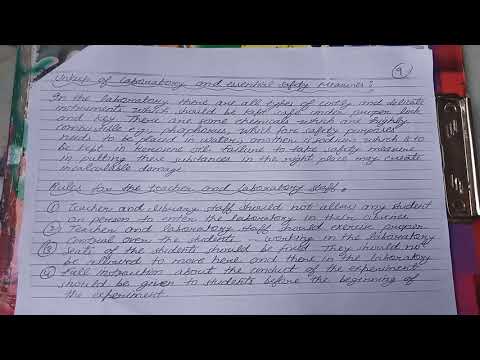 9
Upkeep of laboratory and essential safety measures:
In the laboratory there are all types of costly and delicate
instruments which should be kept safe under proper lock
and key. There are some chemicals which are highly
combustible e.g, phosphorus, which for safety purposes
needs to be placed in water, another is sodium which is to
be kept in kerosine oil. Failure to take safety measure
in putting these substances in the right place may create
incalculable damage.
Rules for the teacher and laboratory staff:
① Teacher and library staff should not allow any student
or person to enter the laboratory in their absence
② Teacher and laboratory staff should exercise proper
control over the students working in the laboratory
③ Seats of the students should be fixed. They should not
be allowed to move here and there in the laboratory
④ Full instruction about the conduct of the experiment
should be given to students before the beginning of
the experiment